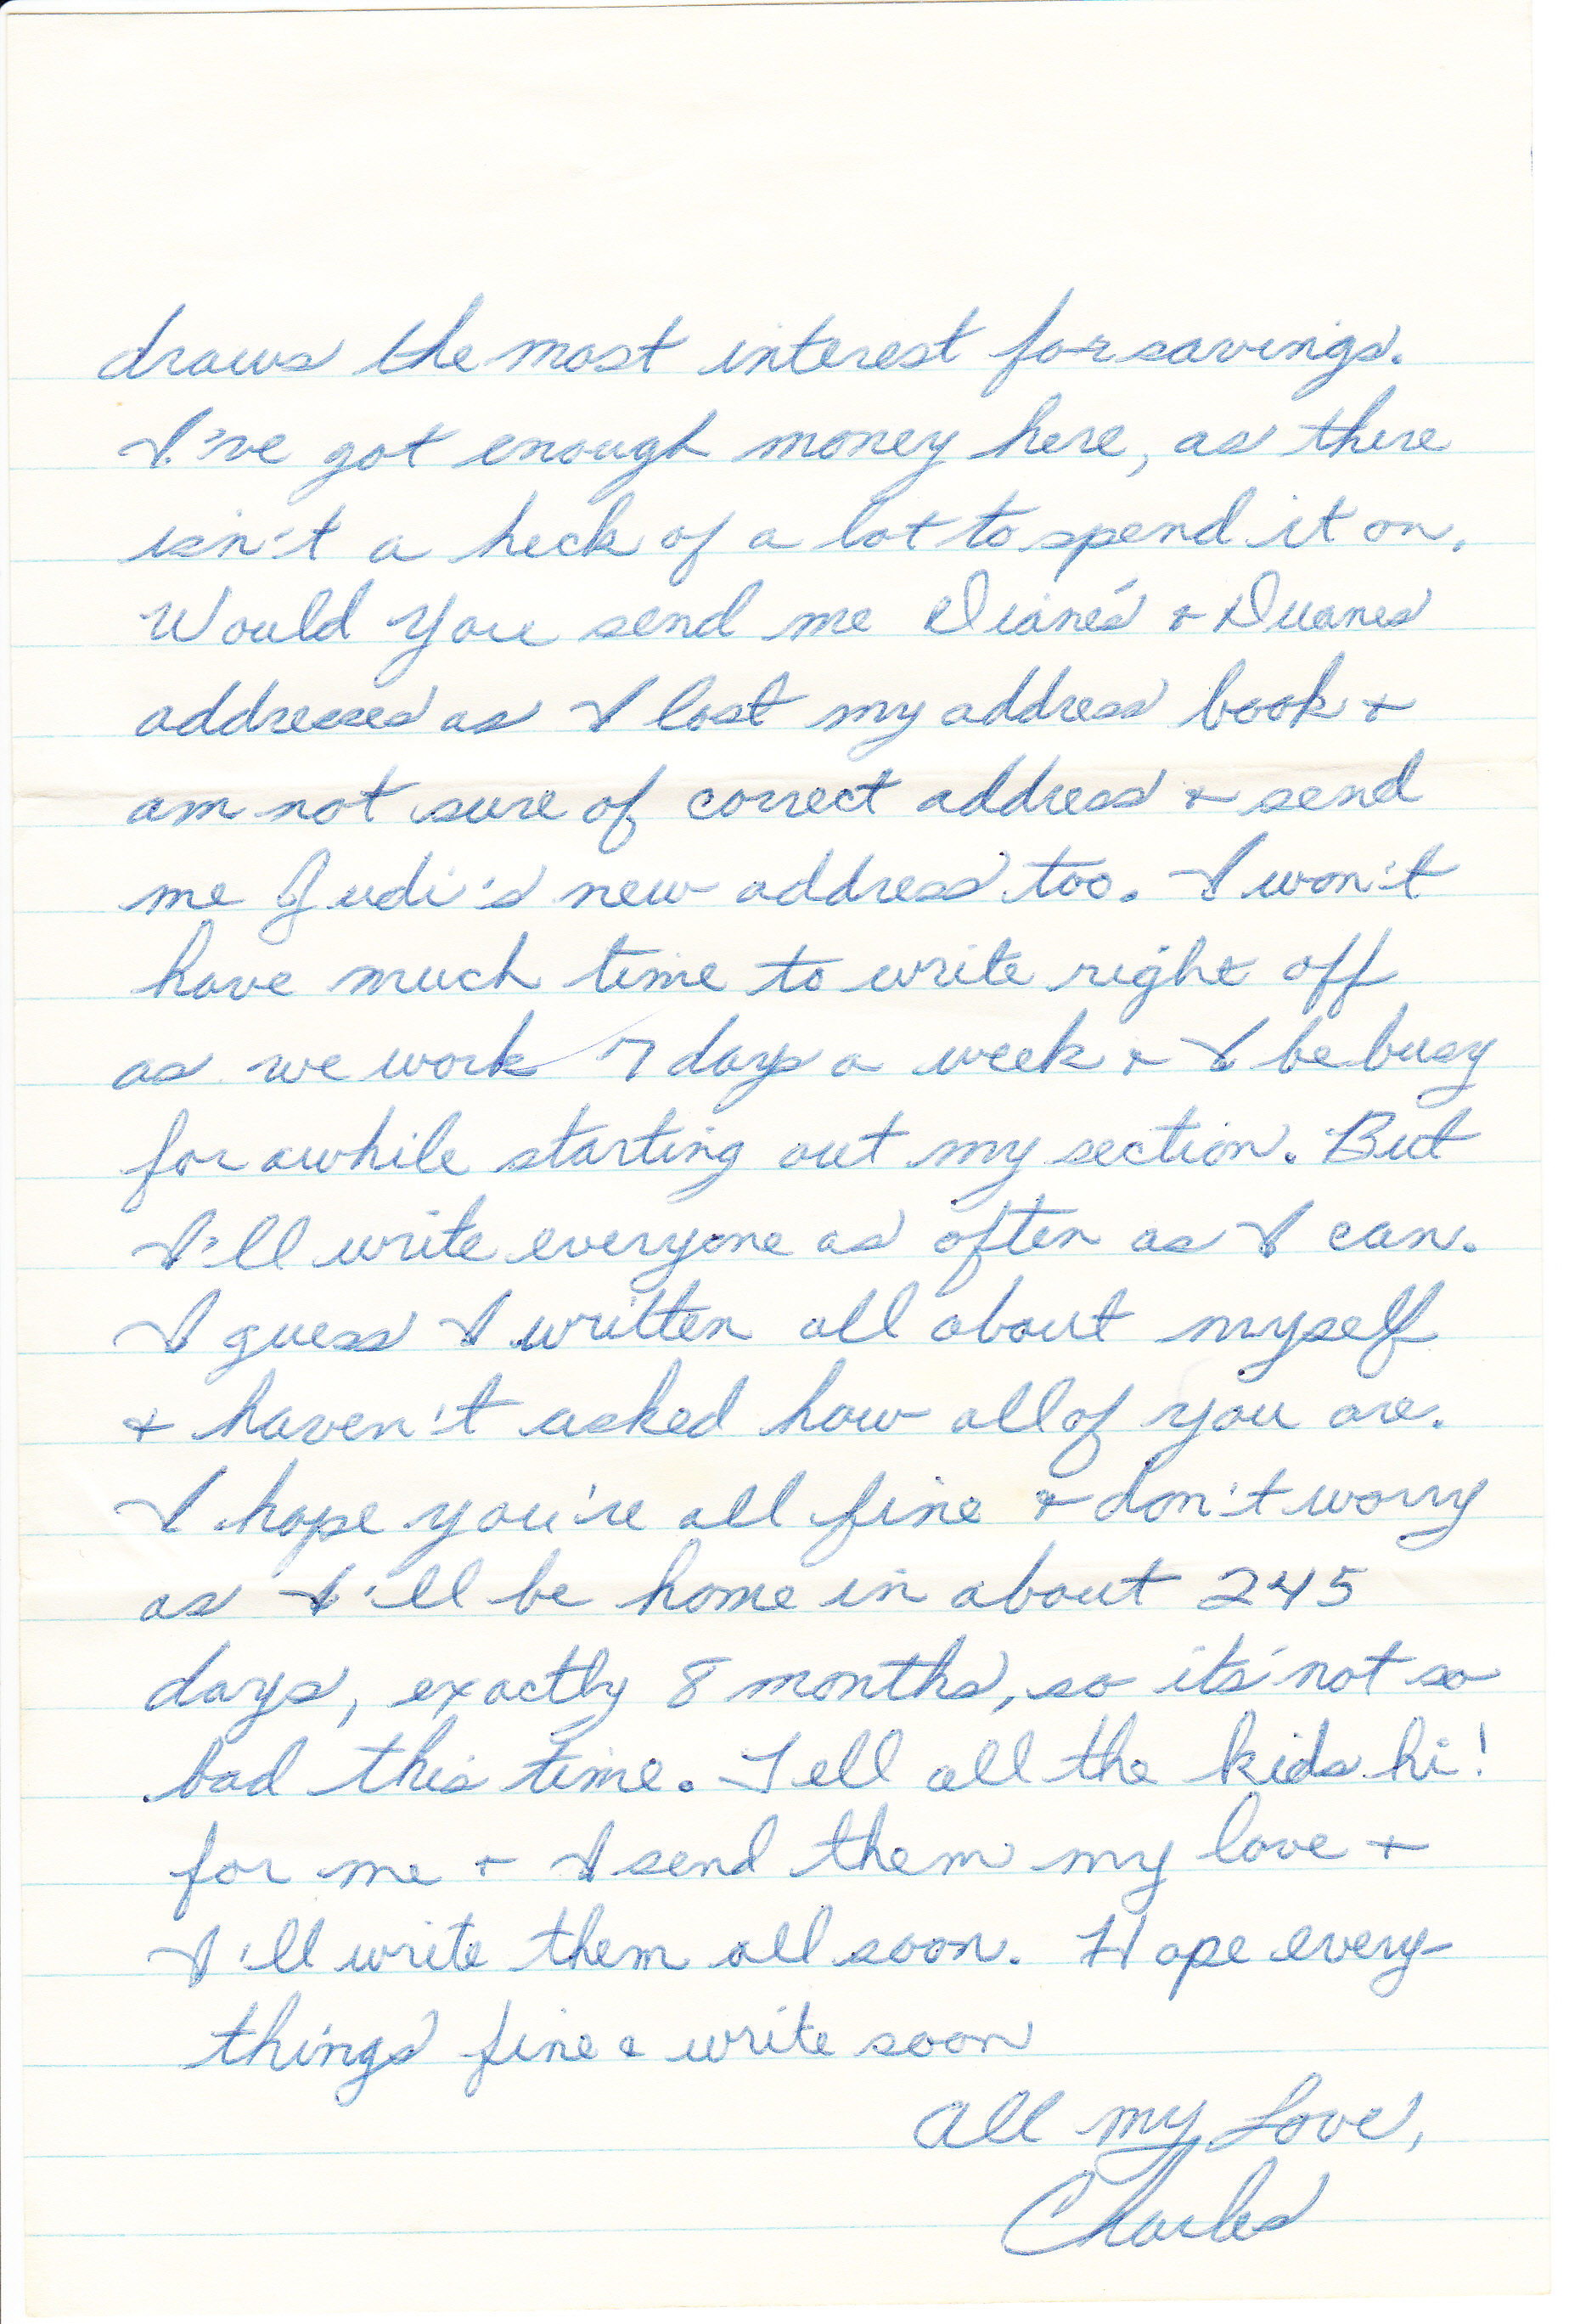 draws the most interest for savings.
I've got enough money here, as there
isn't a heck of a lot to spend it on.
Would you send me Diane's + Duanes
addresses as I lost my address book +
am not sure of correct address + send
me Judi's new address too. I won't
have much time to write right off
as we work 7 days a week + I be busy
for awhile starting out my section. But
I'll write everyone as often as I can.
I guess I written all about myself
+ haven't asked how all of you are.
I hope you're all fine + don't worry
as I'll be home in about 245
days, exactly 8 months, so its' not so
bad this time. Tell all the kids hi!
for me + I send them my love +
I'll write them all soon. Hope every-
things fine & write soon
All my Love,
Charles